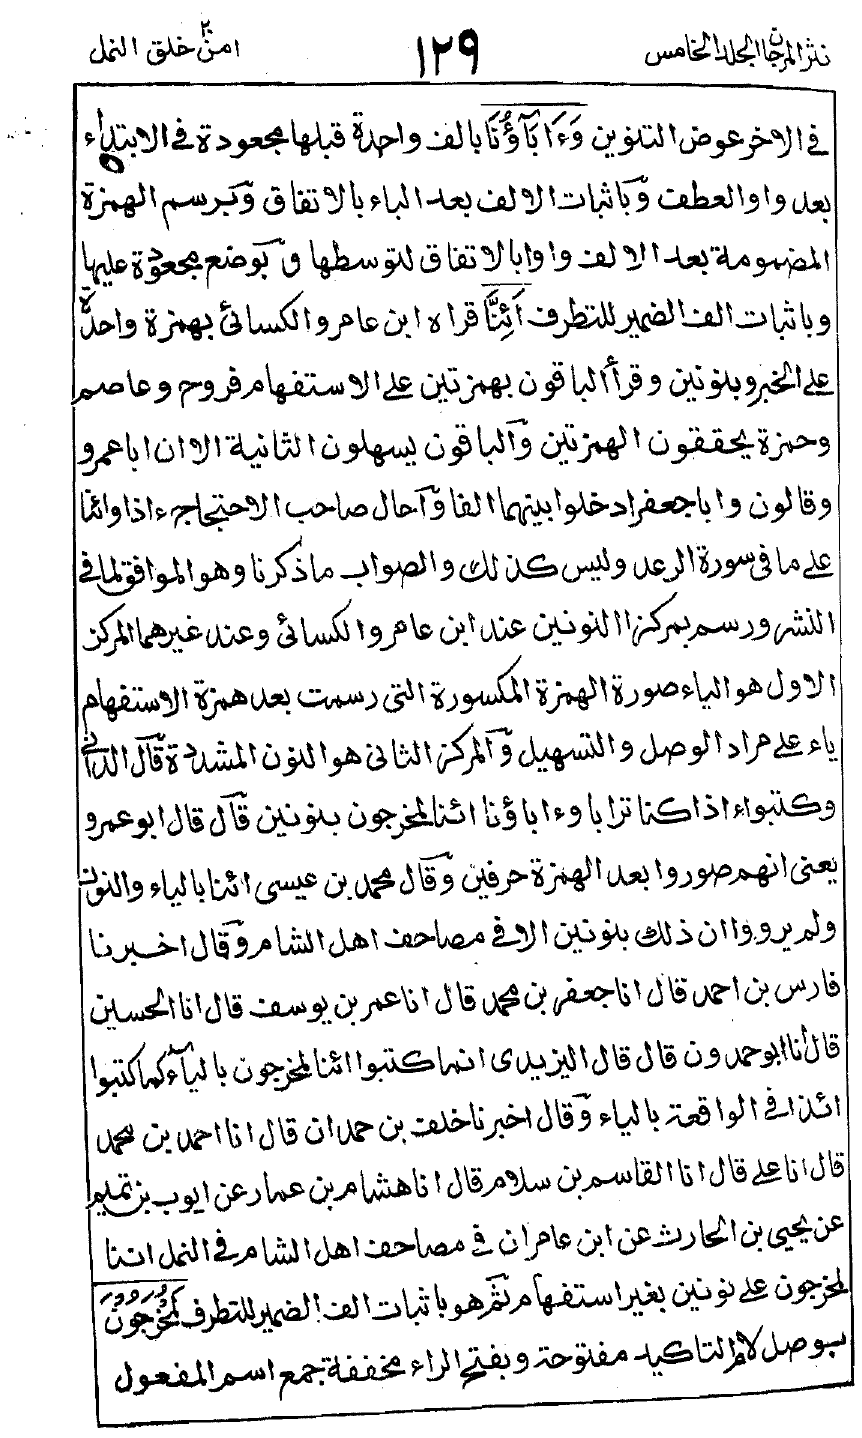 نثر المرجان الجلد الخامس ١٢٩ امن٢٠ خلق النمل
في الاخر عوض التنوين وَءَابَآؤُنَا بالف واحدة قبلها مجعودة في الابتداء
بعد واو العطف وباثبات الالف بعد الباء بالاتفاق وبرسم الهمزة
المضمومة بعد الالف واوا بالاتفاق لتوسطها وبوضع مجعودة عليها
وباثبات الف الضمير للتطرف اَئِنَّا قراه ابن عامر والكسائ بهمزة واحدة
على الخبر وبنونين وقرأ الباقون بهمزتين على الاستفهام فروح وعاصم
وحمزة يحققون الهمزتين والباقون يسهلون الثانية الا ان اباعمرو
وقالون واباجعفر ادخلوا بينهما الفا وآحال صاحب الاحتجاج ءاذا وائنا
على ما في سورة الرعد وليس كذلك والصواب ماذكرنا وهو الموافق لما في
النشر ورسم بمركز النونين عند ابن عامر والكسائ وعند غيرهما المركز
الاول هو الياء صورة الهمزة المكسورة التى رسمت بعد همزة الاستفهام
ياء على مراد الوصل والتسهيل والمركز الثانى هو النون المشددة قال الداني
وكتبوا ءاذا كنا ترابا وءاباؤنا ائنا لمخرجون بنونين قال قال ابو عمرو
يعنى انهم صوروا بعد الهمزة حرفين وقال محمد بن عيسى ائنا بالياء والنون
ولم يرووا ان ذلك بنونين الا في مصاحف اهل الشام وقال اخبرنا
فارس بن احمد قال انا جعفر بن محمد قال انا عمر بن يوسف قال انا الحسين
قال أنا ابوحمدون قال قال اليزيدى انما كتبوا ائنا لمخرجون بالياء كما كتبوا
ائذا في الواقعة بالياء وقال اخبرنا خلف بن حمدان قال انا احمد بن محمد
قال انا على قال انا القاسم بن سلام قال انا هشام بن عمار عن ايوب بن تميم
عن يحيى بن الحارث عن ابن عامر ان في مصاحف اهل الشام في النمل اننا
لمخرجون على نونين بغير استفهام ثم هو باثبات الف الضمير للتطرف لَمُخْرَجُوْنَ
بوصل لام التاكيد مفتوحة وبفتح الراء مخففة جمع اسم المفعول